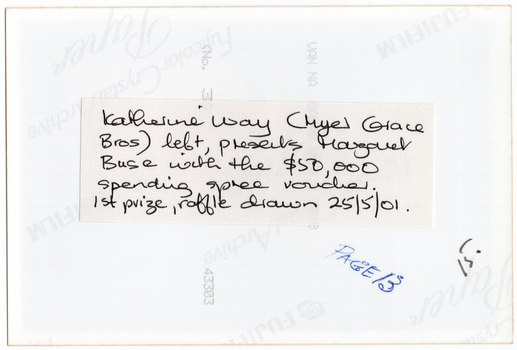 Katherine Way (Myer Grace
Bros) left, presents Margaret
Buse with the $50,000
spending spree voucher.
1st prize, raffle drawn 25/5/01.
PAGE 13
FUJIFILM
Fujicolor Crystal Archive
Paper
43303